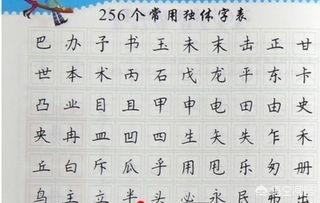 256个常用独体字表
巴 办 予 书 玉 未 末 击 正 甘
世 本 术 丙 石 戊 龙 平 东 卡
凸 业 目 且 甲 申 电 田 由 史
央 冉 皿 凹 四 生 矢 失 乍 禾
丘 白 斥 瓜 乎 用 甩 乐 匆 册
鸟 主 立 半 头 必 永 民 弗 出